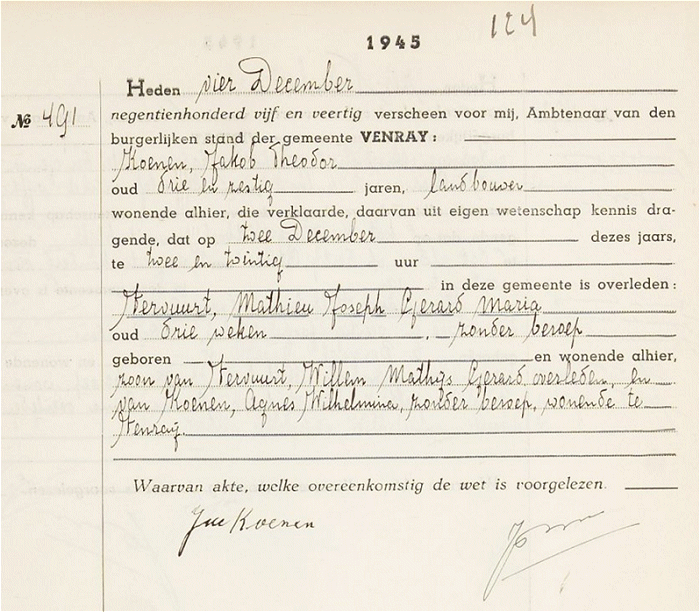 124
1945
Heden vier December
Nº 491 negentienhonderd vijf en veertig verscheen voor mij, Ambtenaar van den
burgerlijken stand der gemeente VENRAY:
Koenen, Jakob Theodor
oud drie en zestig jaren, landbouwer
wonende alhier, die verklaarde, daarvan uit eigen wetenschap kennis dra-
gende, dat op twee December dezes jaars,
te twee en twintig uur
in deze gemeente is overleden:
Vervuurt, Mathieu Joseph Gerard Maria
oud drie weken, zonder beroep
geboren en wonende alhier,
zoon van Vervuurt, Willem Mathijs Gerard overleden, en
van Koenen, Agnes Wilhelmina, zonder beroep, wonende te
Venray.
Waarvan akte, welke overeenkomstig de wet is voorgelezen.
Koenen